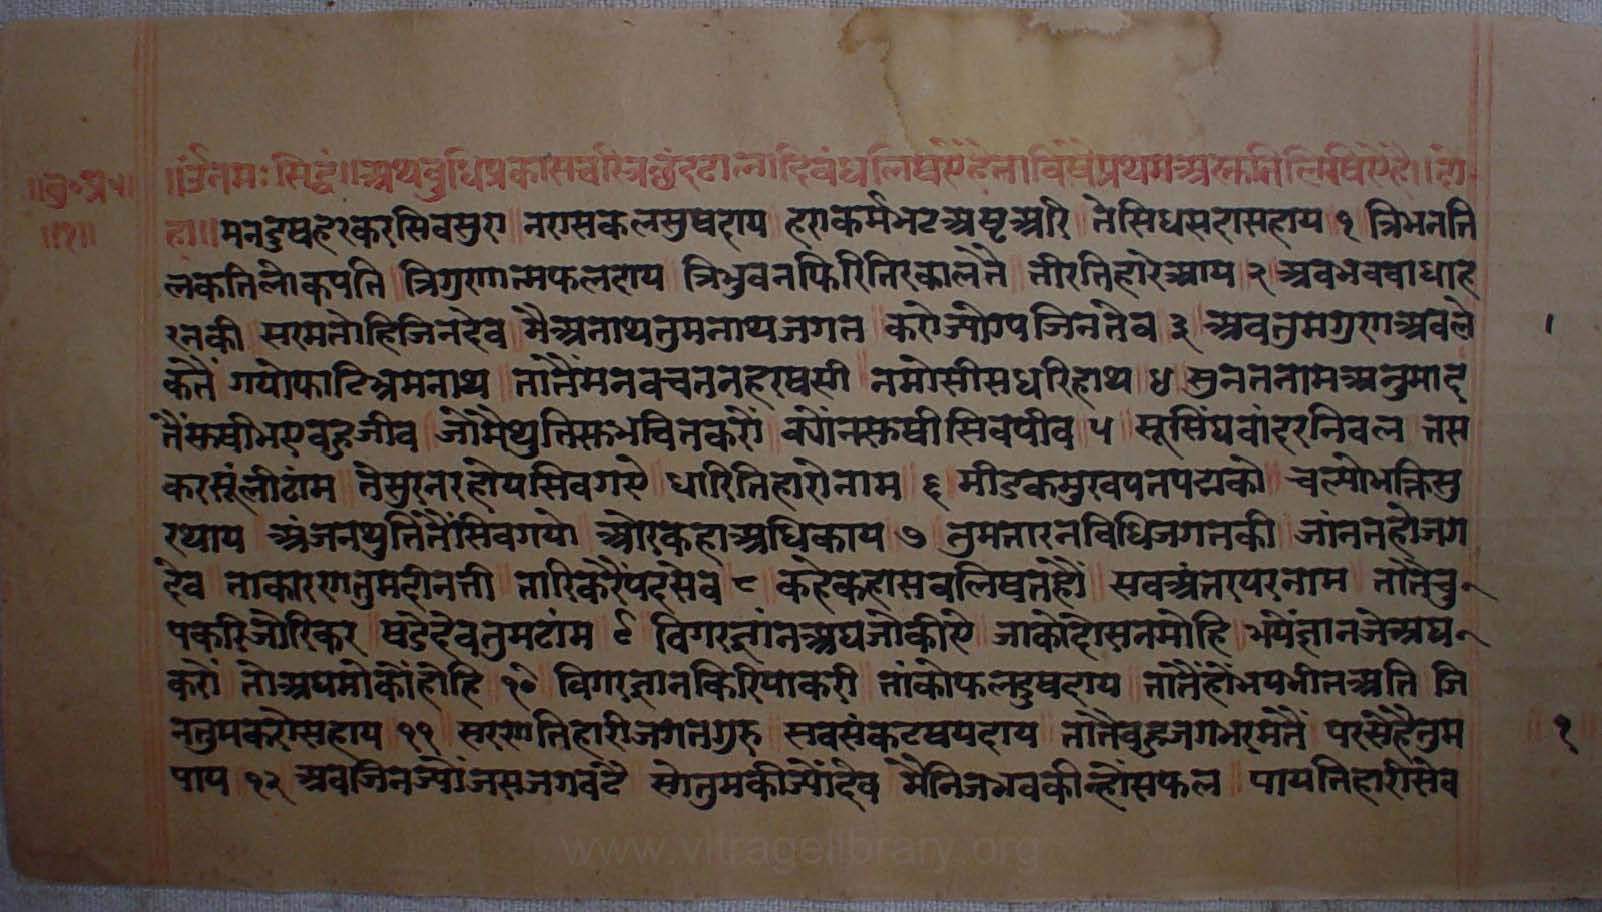 ॥बु॰प्र॰॥
॥१॥
॥उंनमःसिद्धं॥अथबुधिप्रकासचरित्रछंद लिष्यते प्रथमअस्तुतिलिषिऐहै॥दो-
हा॥मनदुषहरकरसिवसुरा नरासकलसुषदाय हराकर्मभटअष्टअरि तेसिधसदासहाय १ त्रिभनति
लकतिलोकपति त्रिगुरणात्मफलदाय त्रिभुवनफिरितिरकालतै तीरतिहारेआय २ अवभववाधाह
रनकी सरमतोहिजिनदेव मैअनाथतुमनाथजगत करोज्योपजिनतेव ३ अवतुमगुराअवले
कतैं गयोफाटिभ्रमनाथ तातैंमनवचतनहरषसी नमोसीसधरिहाथ ४ सुनततनामअनुमोद
तैंसुषीभएवहुजीव जौमैथुतिसुभचितकरौं क्योंनसुषीसिवपीव ५ सूरसिंघवांदरनिवल तस
करसूंलीठांम तेसुरनरहोयसिवगऐ धारितिहारोनाम ६ मीडकमुरवपनपद्मको चल्योभक्तिसु
रथाय अंजनथुतितैंसिवगयो औरकहाअधिकाय ७ तुमतारनविधिजगतकी जांनतहोजग
देव ताकाररातुमहीनती तारिकरैंपदसेव ८ कहेकहासवलिषतहौं सवअंतरपरनाम तातैचु
पकरिजोरिकर षडेदेवतुमठांम ९ विगरज्ञांनअघजोकीऐ जाकोदोसनमोहि भयैंज्ञानजेअघ
करों तोअघमोकौंहोहि १० विगरज्ञानकिरिपाकरी तांकोफलदुषदाय तातैंहोंभयभीतअति जि
नतुमकरोसहाय ११ सरराातिहारीजगतगुरु सवसंकटषयदाय तातैवहुजगभरमतैं परसेहैतुम
पाय १२ अवजिनज्योंजसजगवढै सोतुमकीज्योंदेव मैनिजभवकीन्होंसफल पायतिहारीसेव
१
www.vitragelibrary.org